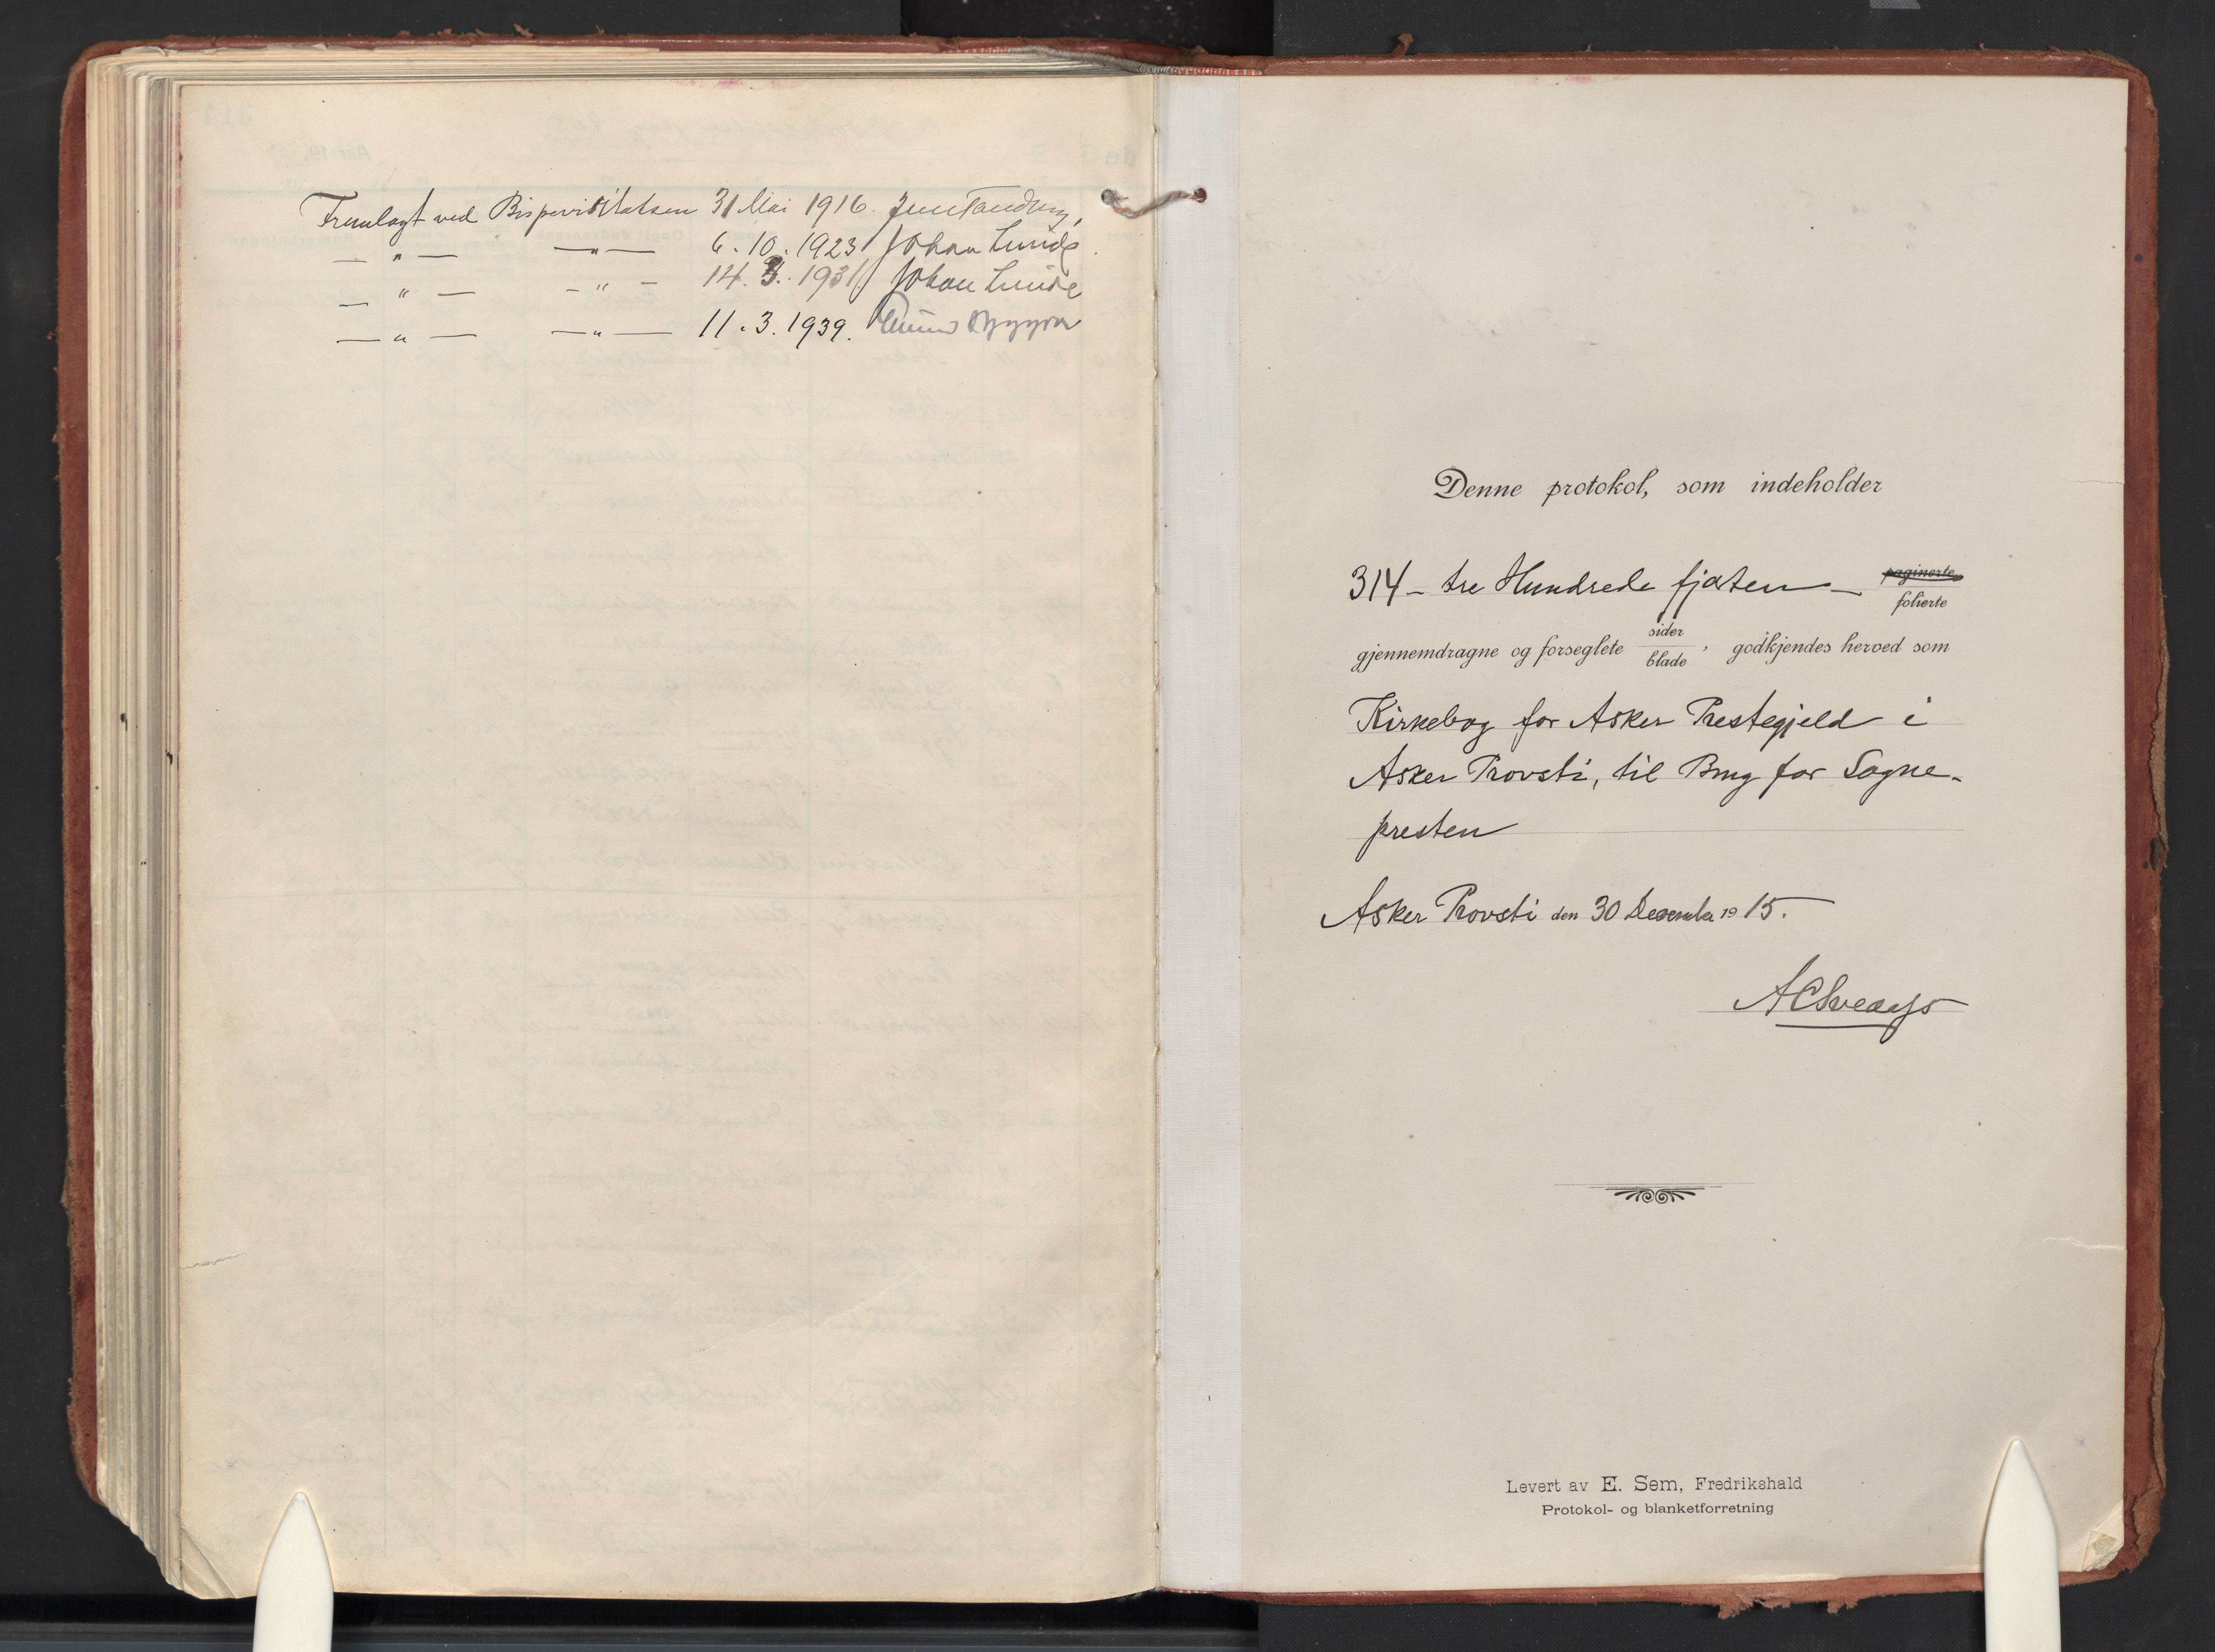 Fremlagt ved Bispevisitatsen 31 Mai 1916. Jens Tandberg,
— " — — " — 6. 10. 1923 Johan Lunde.
— " — — " — 14. 3. 1931 Johan Lunde
— " — — " — 11. 3. 1939.
Denne protokol, som indeholder
314 – tre Hundrede fjorten – paginerte
folierte
gjennemdragne og forseglete sider
blade, godkjendes herved som
Kirkebog for Asker Prestegjeld i
Asker Provsti, til Brug for Sogne-
presten
Asker Provsti den 30 Desember 1915.
Levert av E. Sem, Fredrikshald
Protokol- og blanketforretning